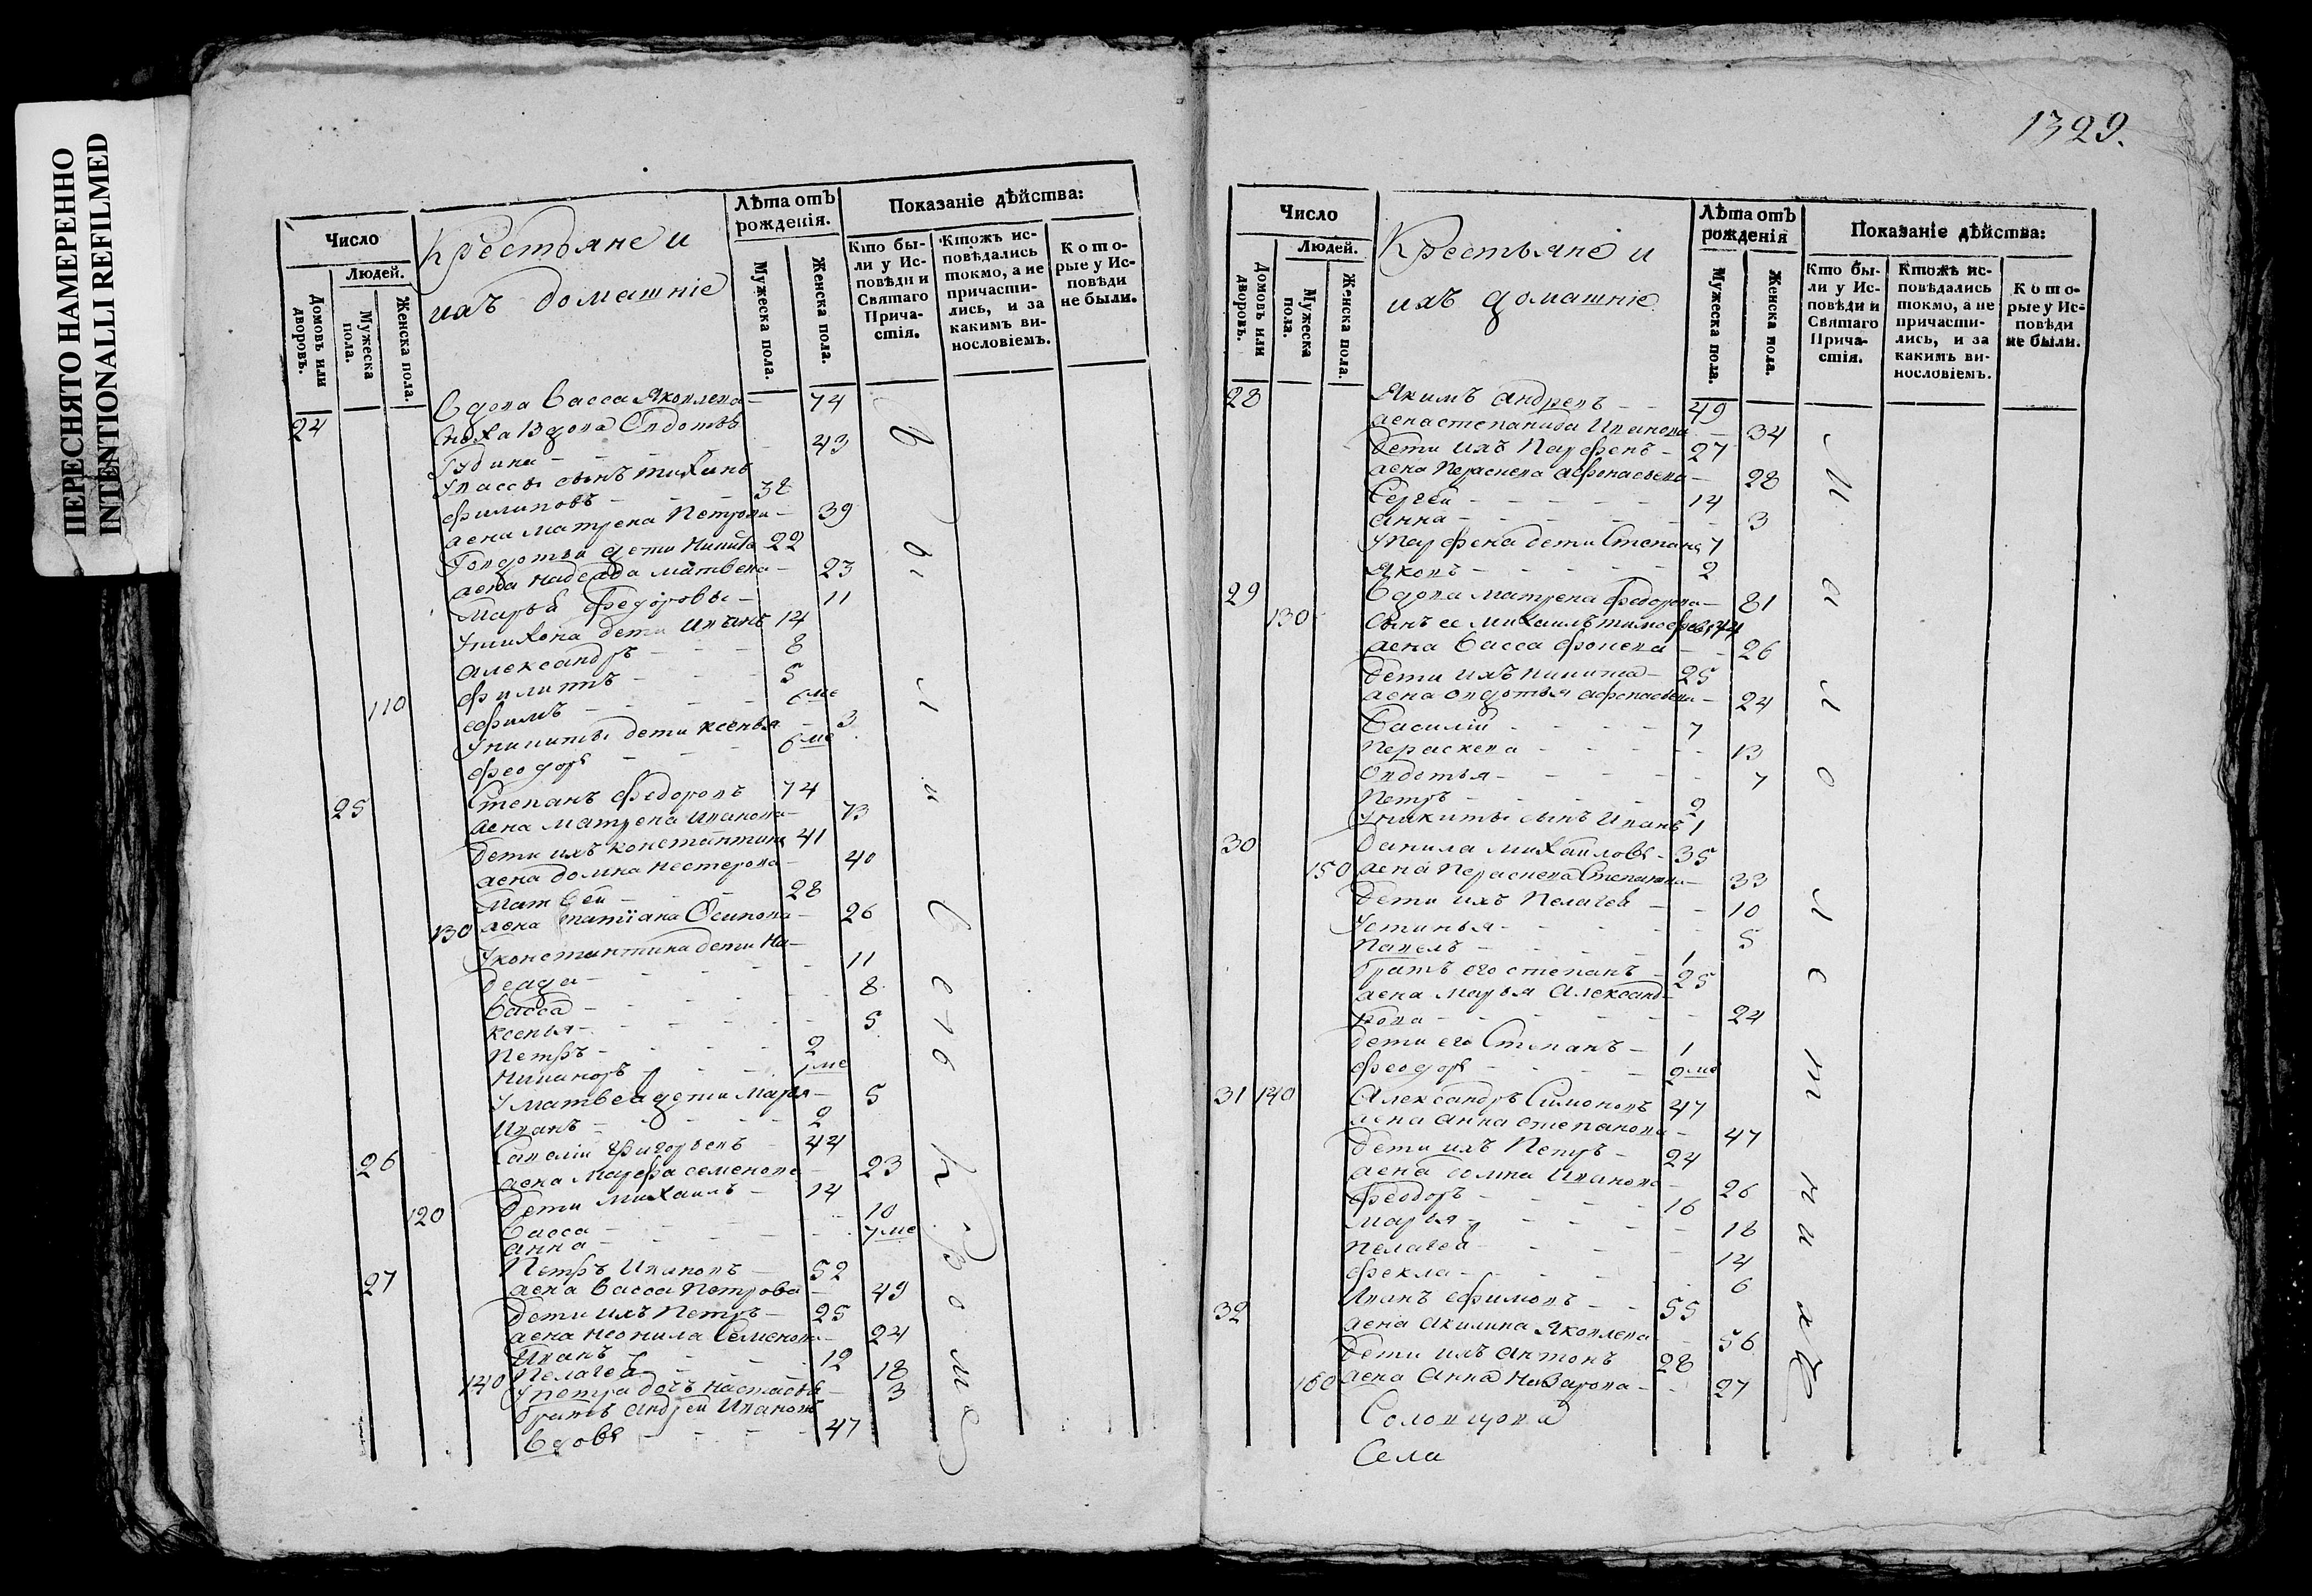 ПЕРЕСНЯТО НАМЕРЕННО
INTENTIONALLI REFILMED
Число
Людей.
Домовъ или дворовъ.
Мужеска пола.
Женска пола.
Крестьяне и
ихъ домашніе
Лѣта отъ рожденія.
Мужеска пола.
Женска пола.
Показаніе дѣйства:
Кто бы-
ли у Ис-
повѣди и
Святаго
Прича-
стія.
Ктожъ ис-
повѣдались
токмо, а не
причасти-
лись, и за
какимъ ви-
нословіемъ.
Кото-
рые у Ис-
повѣди
не были.
24 Вдова Васса Яковлева – 74
Сноха Вдова Овдотья
43
У Вассы сынъ тихинъ
филиповъ – 38
жена матрена Петрова – 39
У овдотьи дети Никита 22
жена надежда матвева – 23
Марья федоровы – 11
У тихона дети Иванъ 14
александръ – 8
филиппъ – 5
110 ефимъ – 6 ме
У никиты дети ксенья – 3
феодоръ – 6 ме
25 Степанъ федоровъ 74
жена матрена Иванова – 73
дети ихъ константинъ 41
жена домна нестерова – 40
Матвей – 28
130 жена татіана Осипова – 26
У константина дети На-
дежда – 11
Васса – 8
ксенья – 5
Петръ – 2
Никаноръ – 1 ме
У матвея дети Марья – 5
Иванъ – 2
26 Савелій григорьевъ – 44
жена Марфа семенова – 23
120 дети михаилъ – 14
Васса – 10
анна – 7 ме
27 Петръ Ивановъ – 52
жена васса Петрова – 49
дети ихъ Петръ – 25
жена неонила Семенова – 24
Иванъ – 12
140 Пелагея – 18
У петра дочь настасья – 3
братъ андрей Ивановъ
вдовъ – 47
Были
Всѣ
1329.
Число
Людей.
Домовъ или дворовъ.
Мужеска пола.
Женска пола.
Крестьяне и
ихъ домашніе
Лѣта отъ рожденія
Мужеска пола.
Женска пола.
Показаніе дѣйства:
Кто бы-
ли у Ис-
повѣди и
Святаго
Прича-
стія.
Ктожъ ис-
повѣдались
токмо, а не
причасти-
лись, и за
какимъ ви-
нословіемъ.
Кото-
рые у Ис-
повѣди
не были.
28 Якимъ андревъ – 49
жена степанида Иванова – 34
дети ихъ Парфенъ – 27
жена Пераскева афонасьева – 28
Сергей – 14
анна – 3
У парфена дети Степанъ 7
Яковъ – 2
29 Вдова матрена федорова – 81
130 Сынъ ее михаилъ тимофеевъ 44
жена Васса фокева – 26
дети ихъ никита – 25
жена овдотья афонасьева – 24
Василій – 7
Пераскева – 13
Овдотья – 7
Петръ – 2
У никиты сынъ Иванъ 1
30 данила михайловъ – 35
150 жена Пераскева Степанова – 33
дети ихъ Пелагея – 10
Устинья – 5
Павелъ – 1
братъ его степанъ – 25
жена марья Александ-
рова – 24
дети его Степанъ – 1
феодоръ – 2 ме
31 140 Александръ Симоновъ 47
жена анна степанова – 47
дети ихъ Петръ – 24
жена домна Иванова – 26
феодоръ – 16
марья – 18
Пелагея – 14
фекла – 6
32 Иванъ ефимовъ – 55
жена акилина Яковлева – 56
дети ихъ антонъ 28
160 жена Анна назарова – 27
Малолетнихъ
Села